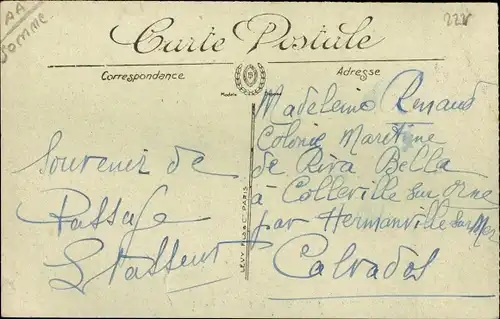 AA
Somme
222
Carte Postale
Correspondance
Adresse
Modèle
Souvenir de
Passage
LÉVY FILS & Cie PARIS
Madeleine Renaud
Colonie Maritime
de Riva Bella
à Colleville sur Orne
par Hermanville sur Mer
Calvados